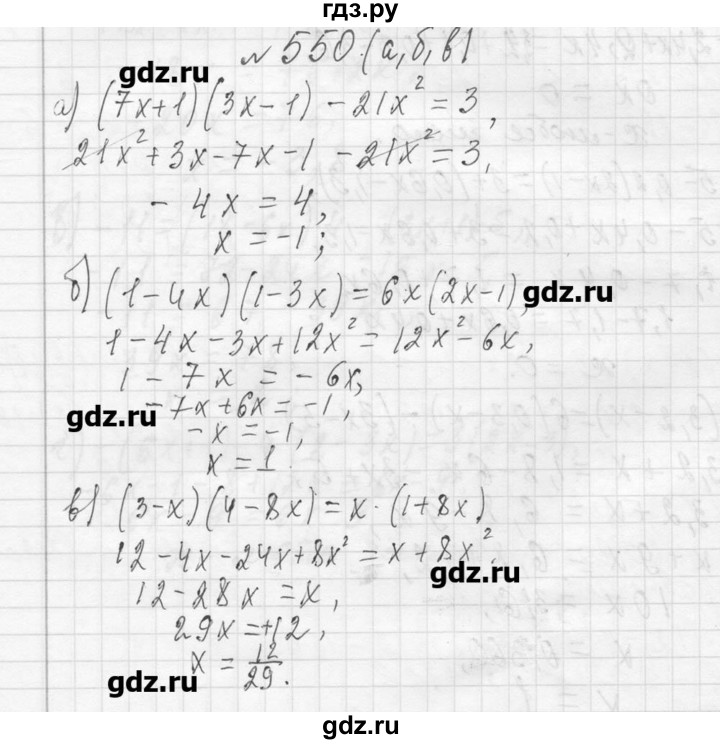 гдз.ру
№ 550 (а, б, в)
gdz.ru
а) (7x+1)(3x-1) - 21x² = 3,
21x² + 3x - 7x - 1 - 21x² = 3,
- 4x = 4,
x = -1;
б) (1-4x)(1-3x) = 6x(2x-1),
gdz.ru
1 - 4x - 3x + 12x² = 12x² - 6x,
1 - 7x = - 6x,
gdz.ru
- 7x + 6x = -1,
- x = -1,
x = 1.
в) (3-x)(4-8x) = x · (1+8x)
12 - 4x - 24x + 8x² = x + 8x².
gdz.ru
12 - 28x = x,
29x = +12,
x = 12/29.
gdz.ru
gdz.ru